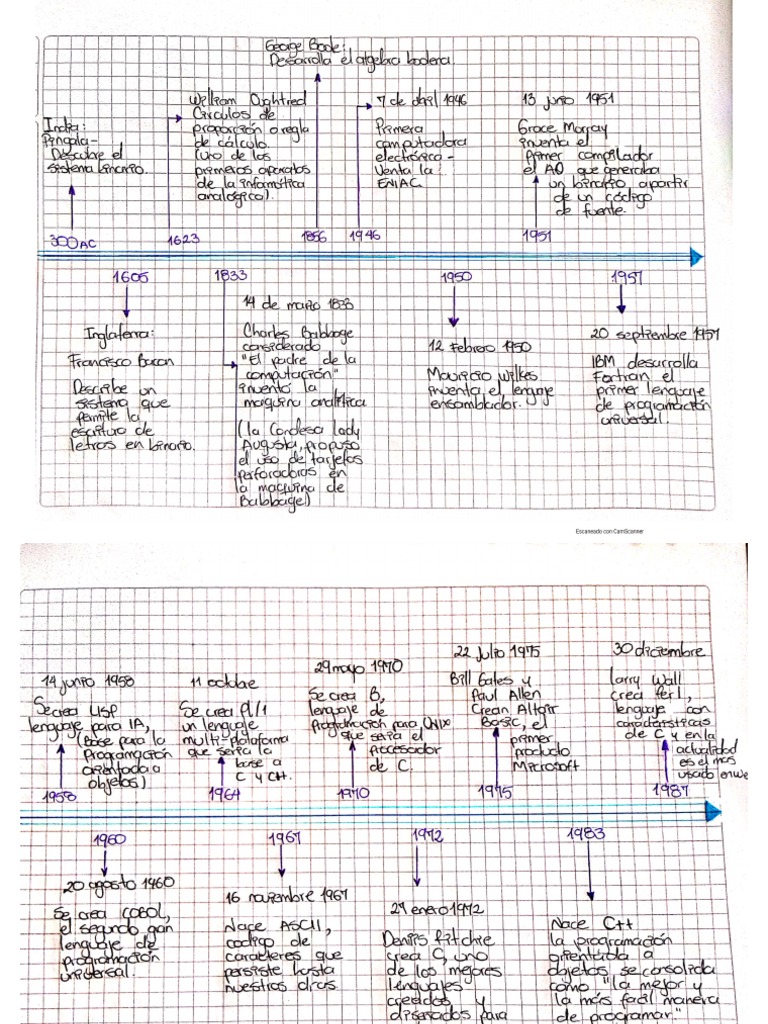 George Boole:
Desarrolla el algebra boolera.
William Oughtred
Circulos de
proporción o regla
de cálculo.
(uno de los
primeros aparatos
de la informática
analógica).
7 de abril 1946
Primera
computadora
electrónica -
Venta la :
ENIAC
13 junio 1951
Grace Murray
inventa el
Primer compilador
el A0 que generaba
un binario apartir
de un código
de fuente.
India:
Pingala -
Descubre el
sistema binario.
300 AC
1623
1856
1946
1951
1605
1833
1950
1957
Inglaterra:
Francisco Bacon
Describe un
sistema que
permite la
escritura de
letros en binario.
14 de marzo 1833
Charles Babbage
considerado
"El padre de la
computación"
inventó la
maquina analítica
(la Condesa lady
Augusta, propuso
el uso de tarjetas
perforadoras en
la maquina de
Babbage)
12 Febrero 1950
Mauricio Wilkes
inventa el lenguaje
ensamblador.
20 septiembre 1957
IBM desarrolla
Fortran el
primer lenguaje
de programación
universal.
Escaneado con CamScanner
14 junio 1958
Se crea LISP
lenguaje para IA,
(Base para la
Programación
orientada a
objetos)
11 octubre
Se crea Pl/1
un lenguaje
multi-plataforma
que seria la
base a
C y C++.
29 mayo 1970
Se crea B,
lenguaje de
Programación para UNIX
que seria el
procesador
de C.
22 julio 1975
Bill Gates y
Paul Allen
Crean Altair
Basic, el
primer
producto
Microsoft
30 diciembre
Larry Wall
crea Perl,
lenguaje con
características
de C y en la
actualidad
es el más
usado en we
1958
1964
1970
1975
1987
1960
1967
1972
1983
20 agosto 1960
Se crea COBOL,
el segundo gan
lenguaje de
programación
universal.
16 noviembre 1967
Nace ASCII,
codigo de
carácteres que
persiste hasta
nuestros días
27 enero 1972
Denis Ritchie
crea C, uno
de los mejores
lenguajes
creados y
diseñados para
Nace C++
la programación
orientada a
objetos se consolida
como "la mejor y
la más facil manera
de programar."